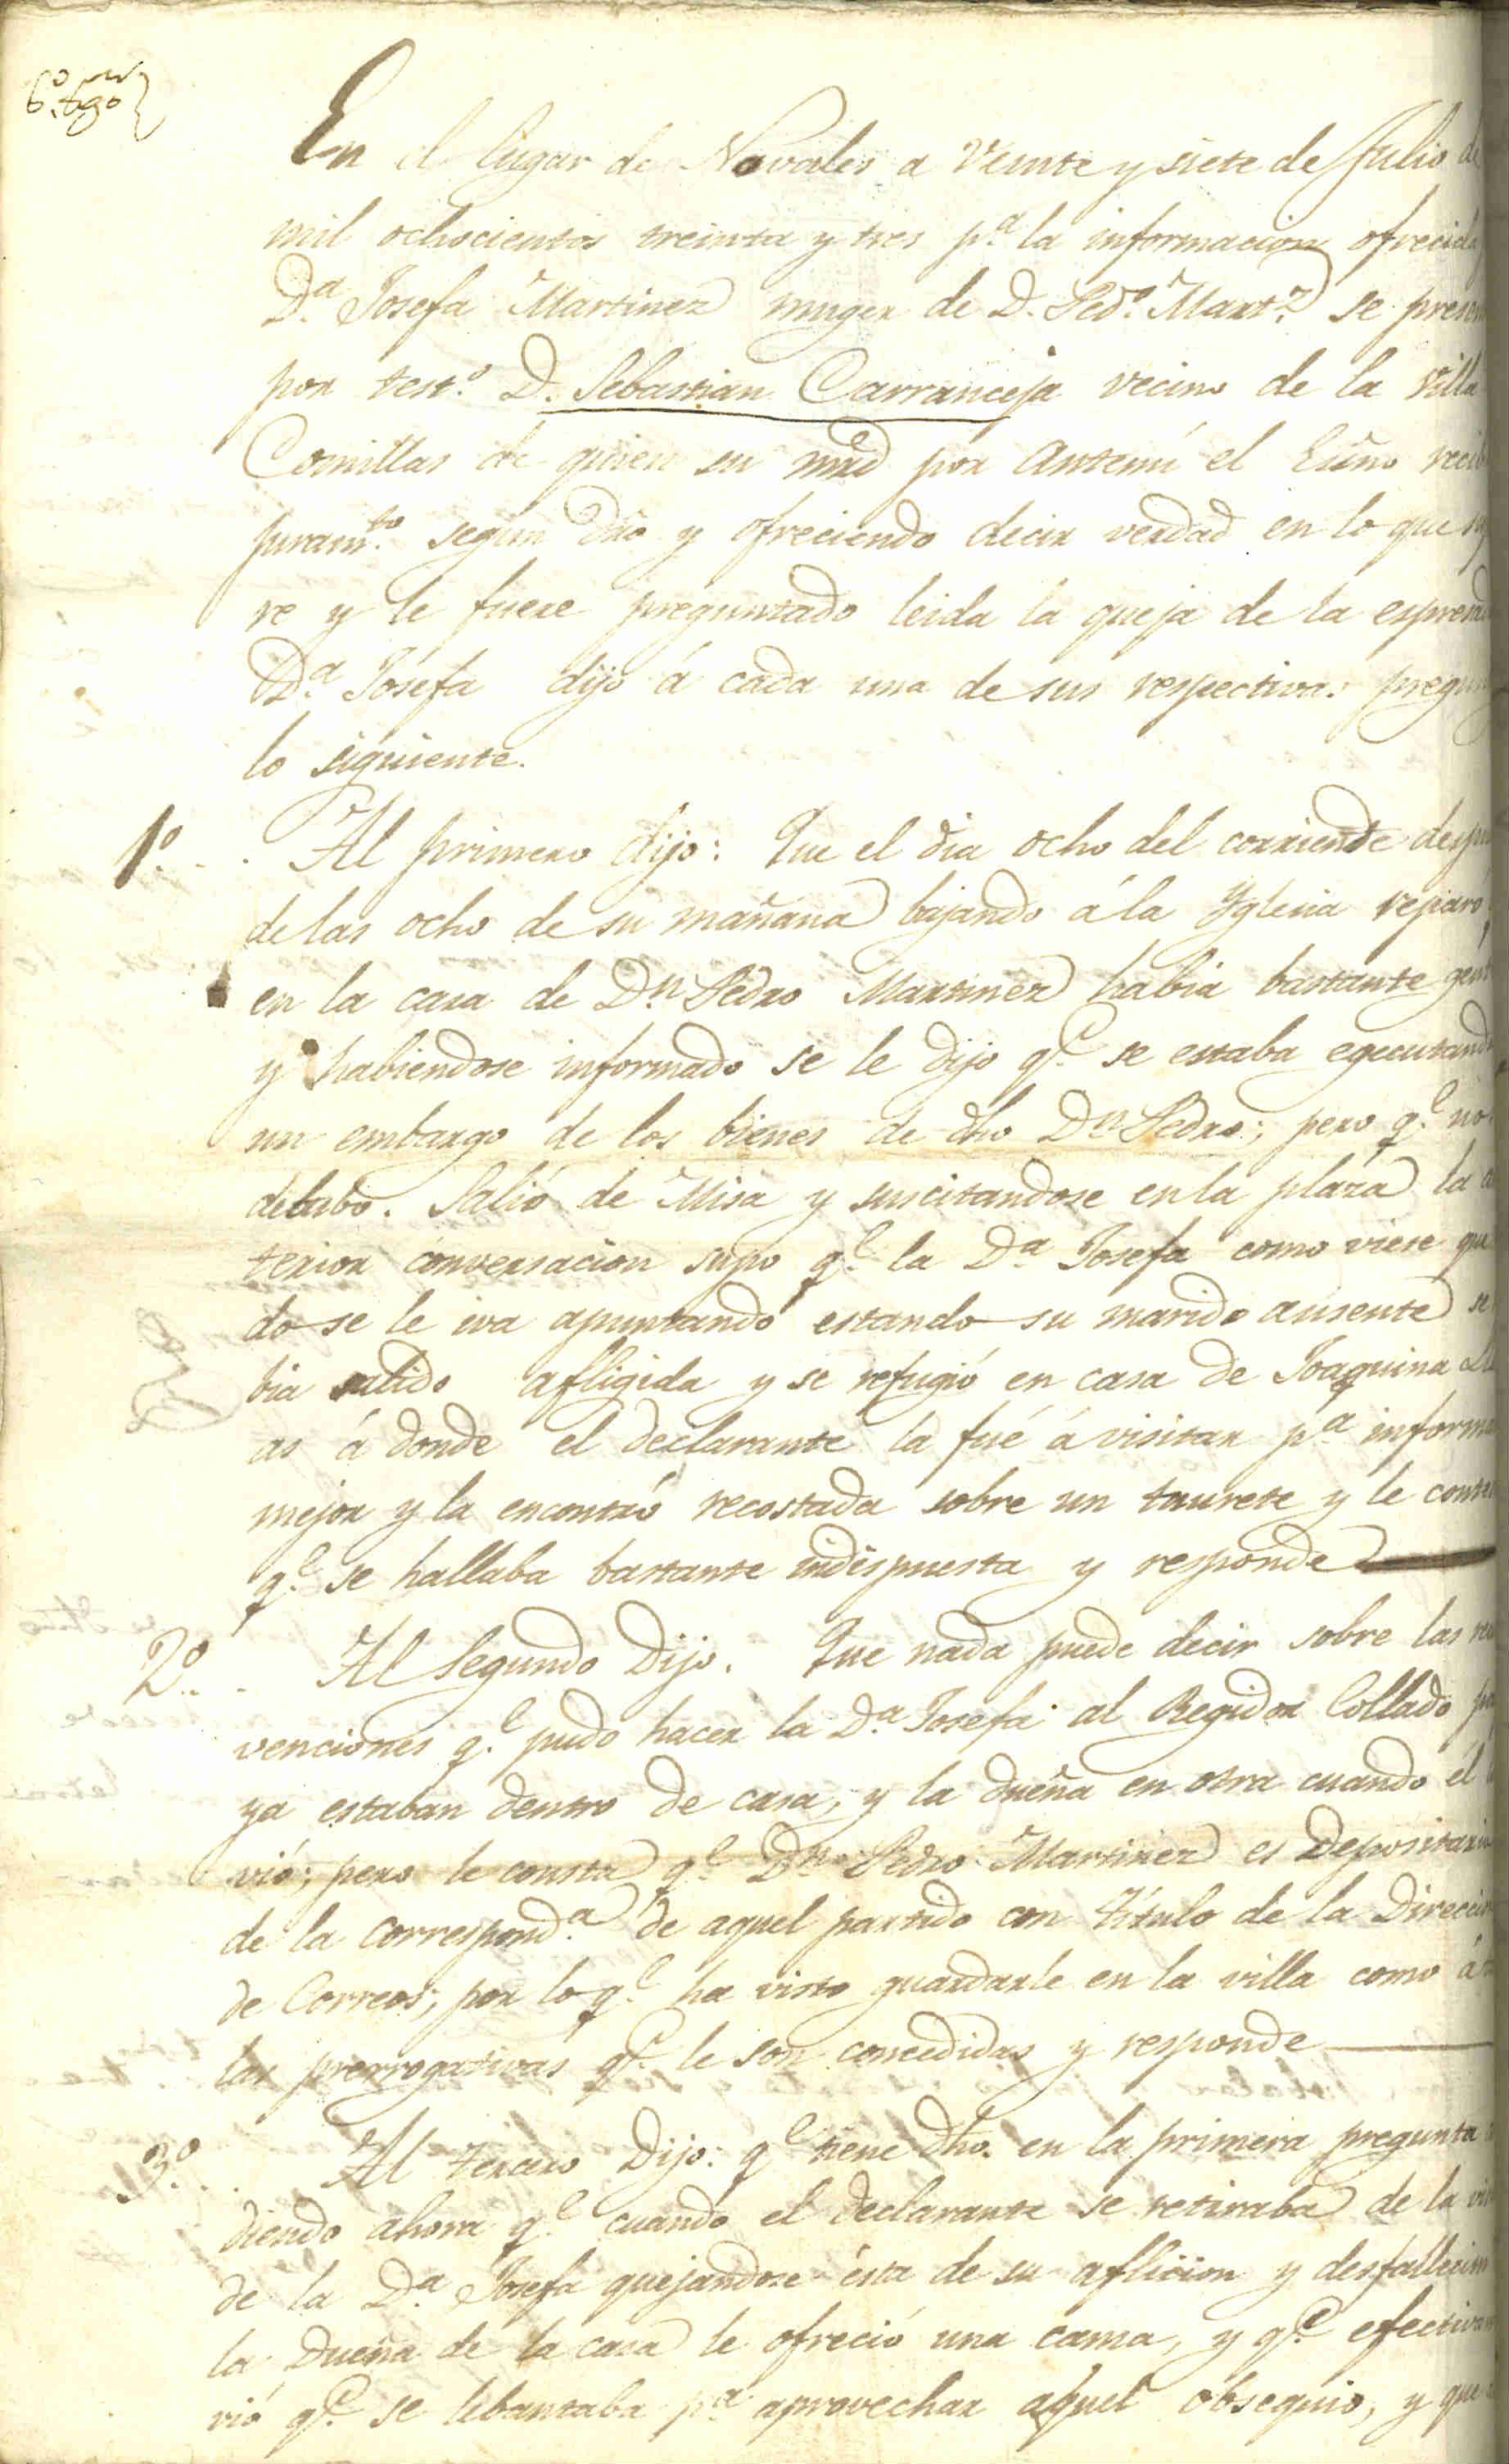 6.º tgo
En el lugar de Novales a veinte y siete de Julio de
mil ochocientos treinta y tres p.ª la informacion ofrecida
D.ª Josefa Martinez muger de D. Ped.º Mart.z se presen
por test.º D. Sebastian Carranceja vecino de la villa
Comillas de quien su mrd por antemi el Essno recib
juram.to segun dro y ofreciendo decir verdad en lo que
re y le fuere preguntado leida la queja de la espresad
D.ª Josefa dijo á cada una de sus respectivas pregun
lo siguiente.
1.º Al primero dijo: Que el dia ocho del corriente despu
de las ocho de su mañana bajando á la Yglesia reparó
en la casa de D.n Pedro Martinez habia bastante gent
y habiendose informado se le dijo q.e se estaba egecutand
un embargo de los bienes de dho D.n Pedro; pero q.e no
detubo. Salió de Misa y suscitandose en la plaza la a
terior conversacion supo q.e la D.ª Josefa como viese qu
do se le iva apuntando estando su marido ausente se
bia salido afligida y se refugió en casa de Joaquina
as á donde el declarante la fué á visitar p.ª inform
mejor y la encontró recostada sobre un taurete y le conte
q.e se hallaba bastante indispuesta y responde
2.º Al Segundo Dijo. Que nada puede decir sobre las re
venciones q.e pudo hacer la D.ª Josefa al Regidor Collado p
ya estaban dentro de casa, y la dueña en otra cuando él
vió; pero le consta q.e D.n Pedro Martinez es Depositario
de la correspond.ª de aquel partido con título de la Direccio
de Correos; por lo q.e ha visto guardarle en la villa como á
las prerrogativas q.e le son concedidas y responde
3.º Al tercero Dijo: q.e tiene dho. en la primera pregunta
diendo ahora q.e cuando el declarante se retiraba de la vi
de la D.ª Josefa quejandose ésta de su aflicion y desfallecim
la Dueña de la casa le ofreció una cama, y q.e efectivam
vió q.e se lebantaba p.ª aprovechar aquel obsequio, y que